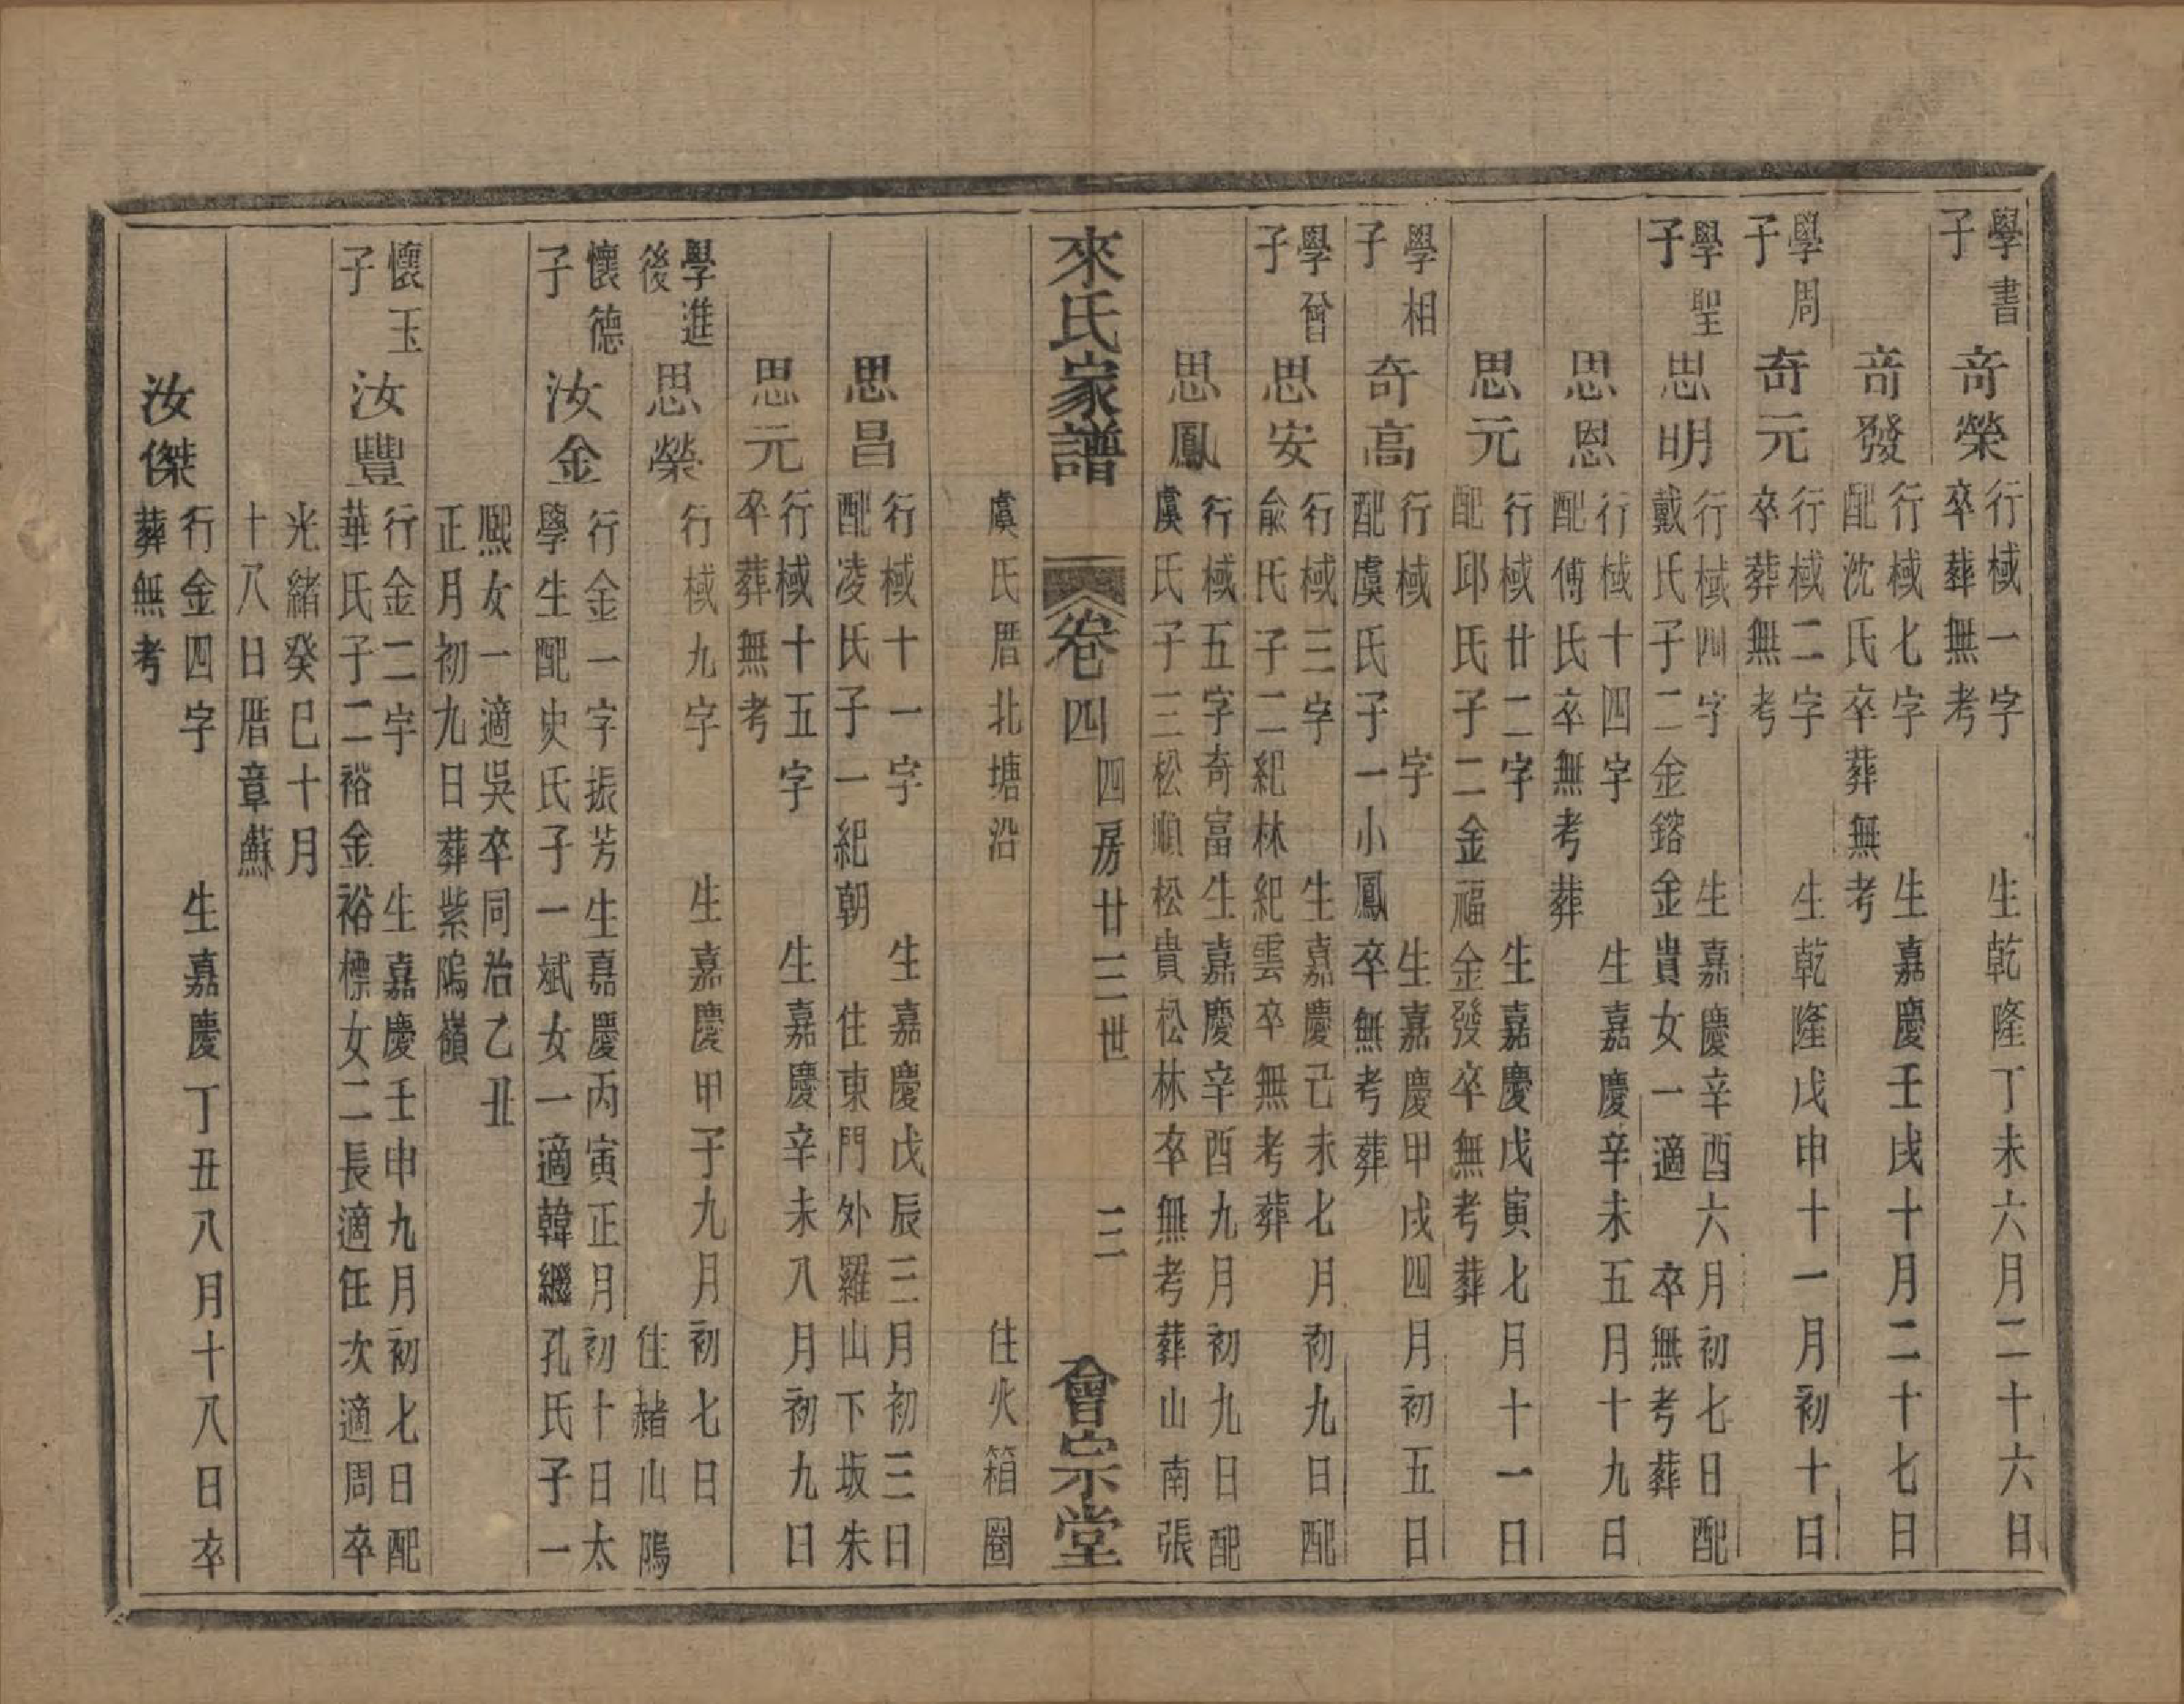 學書子
奇榮
行棫一字　生乾隆丁未六月二十六日
卒葬無考
奇發
行棫七字　生嘉慶壬戌十月二十七日
配沈氏卒葬無考
學周子
奇元
行棫二字　生乾隆戊申十一月初十日
卒葬無考
學聖子
思明
行棫四字　生嘉慶辛酉六月初七日配
戴氏子二金鎔金貴女一適　卒無考葬
思恩
行棫十四字　生嘉慶辛未五月十九日
配傅氏卒無考葬
思元
行棫廿二字　生嘉慶戊寅七月十一日
配邱氏子二金福金發卒無考葬
學相子
奇高
行棫　字　生嘉慶甲戌四月初五日
配虞氏子一小鳳卒無考葬
學曾子
思安
行棫三字　生嘉慶己未七月初九日配
俞氏子二紀林紀雲卒無考葬
思鳳
行棫五字奇富生嘉慶辛酉九月初九日配
虞氏子三松順松貴松林卒無考葬山南張
來氏家譜　卷四　四房廿三世　三　會宗堂
虞氏厝北塘沿　住火箱圈
思昌
行棫十一字　生嘉慶戊辰三月初三日
配凌氏子一紀朝　住東門外羅山下坂朱
思元
行棫十五字　生嘉慶辛未八月初九日
卒葬無考
學進後
思榮
行棫九字　生嘉慶甲子九月初七日
住赭山隖
懷德子
汝金
行金一字振芳生嘉慶丙寅正月初十日太
學生配史氏子一斌女一適韓繼孔氏子一
熙女一適吳卒同治乙丑
正月初九日葬紫隖嶺
懷玉子
汝豐
行金二字　生嘉慶壬申九月初七日配
華氏子二裕金裕標女二長適任次適周卒
光緒癸巳十月
十八日厝章蘇
汝傑
行金四字　生嘉慶丁丑八月十八日卒
葬無考